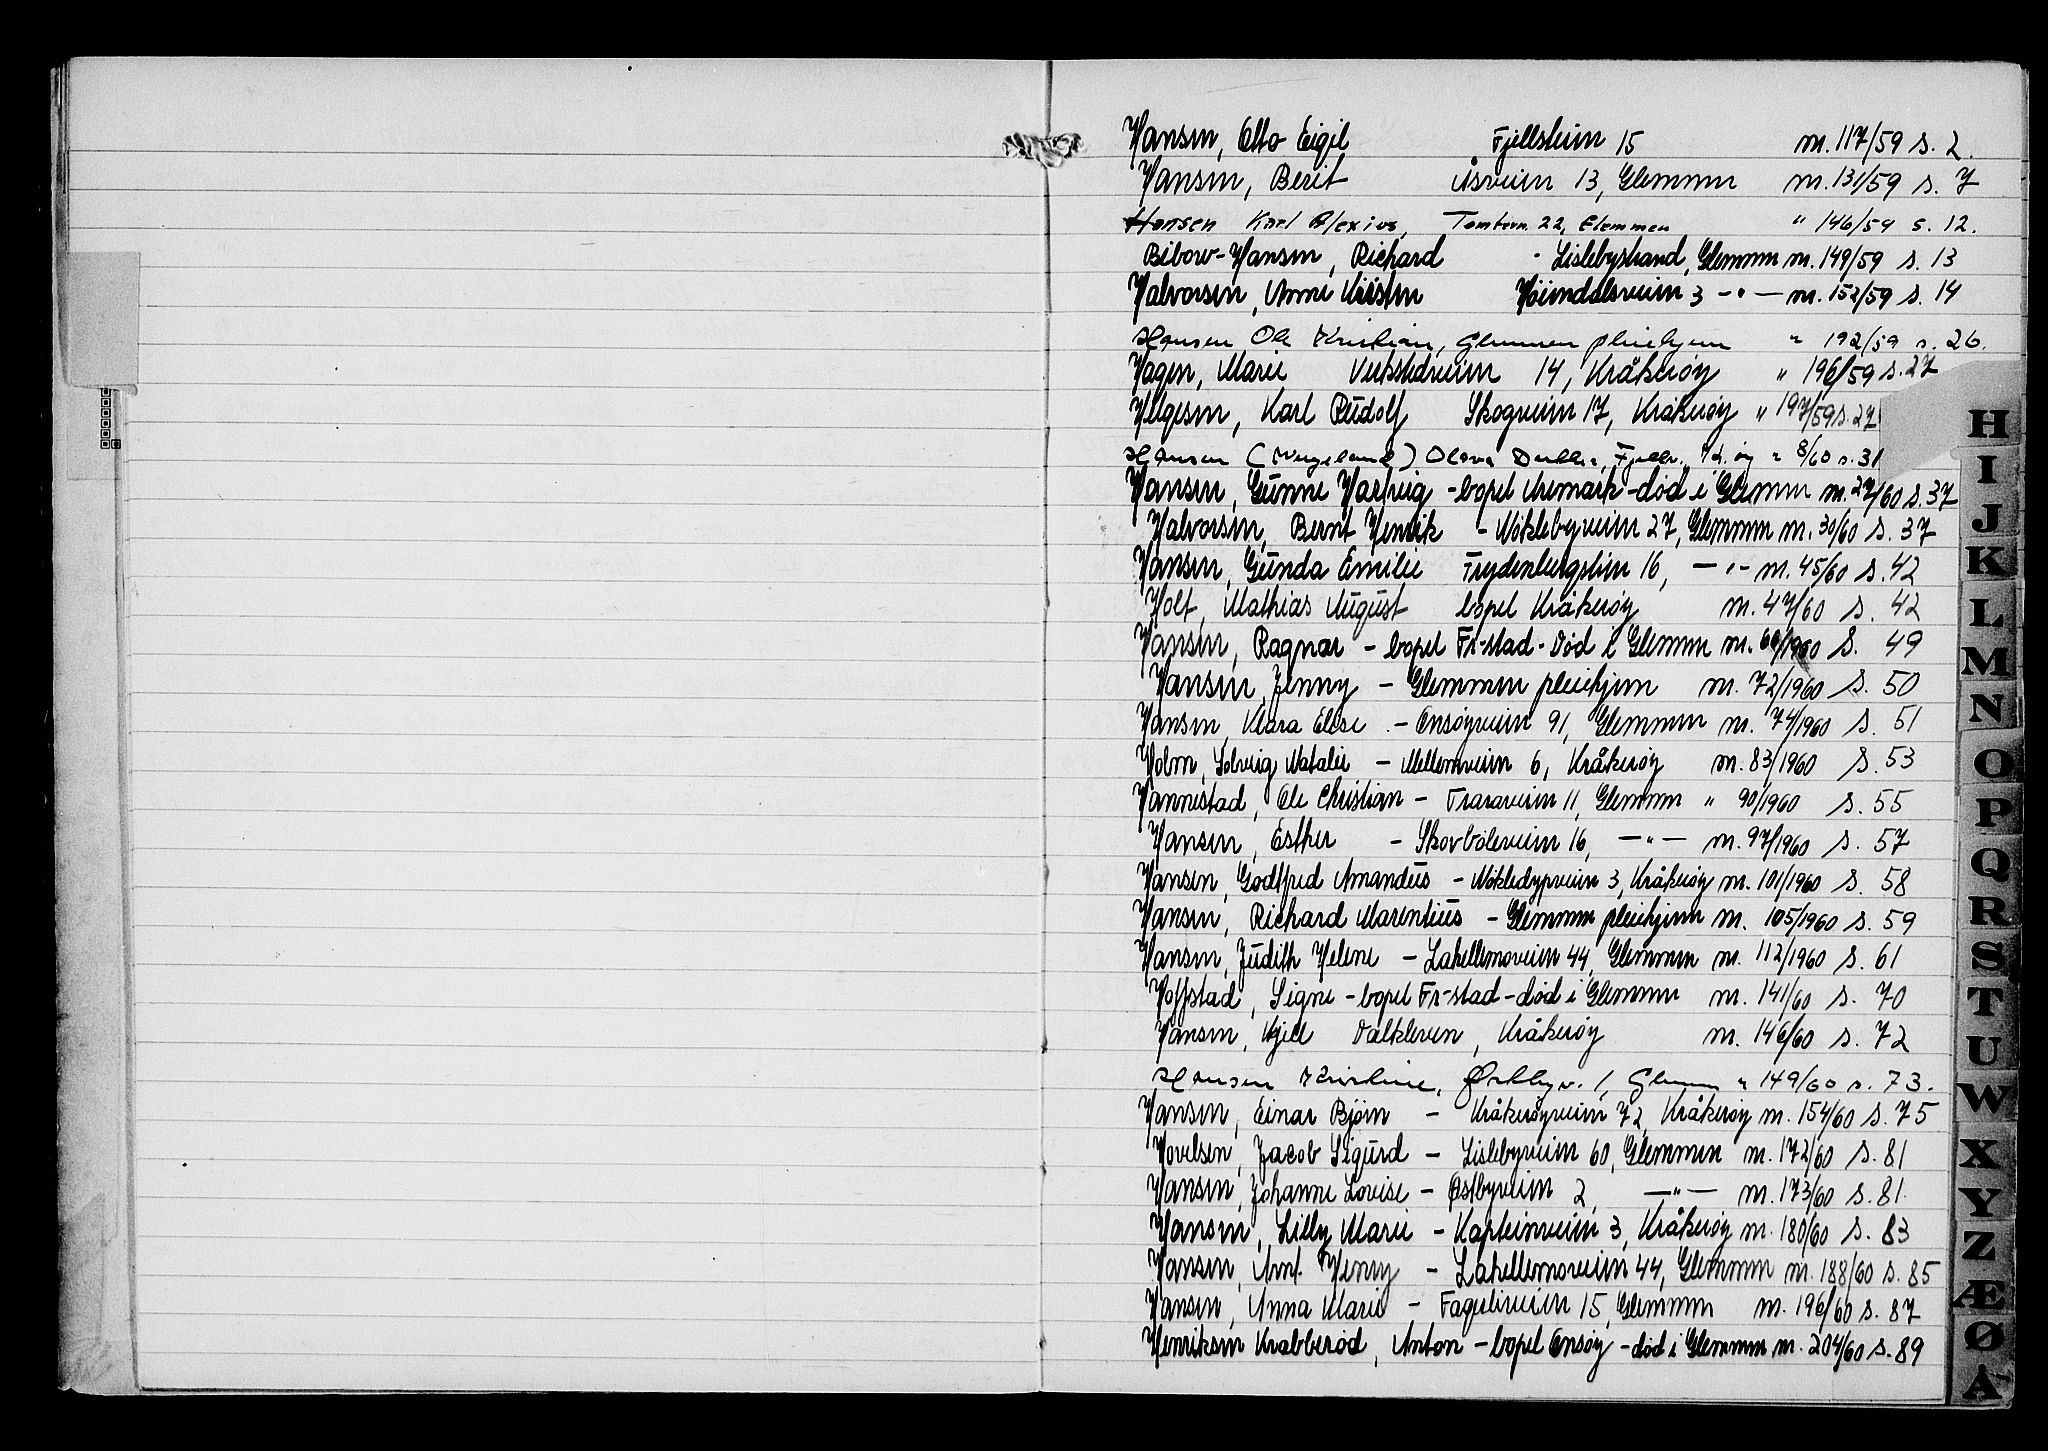 Hansen, Otto Eigil Fjellsteien 15 nr. 117/59 s. 2.
Hansen, Berit Åsveien 13, Glemmen nr. 131/59 s. 7
Hansen Karl Alexius, Tomterv. 22, Glemmen " 146/59 s. 12.
Bibow-Hansen, Richard - Lislebystrand, Glemmen nr. 149/59 s. 13
Halvorsen, Anne Kirsten Høiendalsveien 3 -"- nr. 152/59 s. 14
Hansen Ole Kristian, Glemmen pleiehjem " 192/59 s. 26.
Hagen, Marie Verkstedveien 14, Kråkerøy " 196/59 s. 27
Helgesen, Karl Rudolf Skogveien 17, Kråkerøy " 197/59 s. 27
Hansen (Vegeland) Olava " 8/60 s. 31
Hansen, Gunne Hartvig - bopel Aremark - død i Glemmen nr. 27/60 s. 37
Halvorsen, Bernt Henrik - Nøklebyveien 27, Glemmen nr. 30/60 s. 37
Hansen, Gunda Emilie Frydenbergstien 16, -"- nr. 45/60 s. 42
Holt, Mathias August bopel Kråkerøy nr. 47/60 s. 42
Hansen, Ragnar - bopel Fr-stad - død i Glemmen nr. 66/1960 s. 49
Hansen, Jenny - Glemmen pleiehjem nr. 72/1960 s. 50
Hansen, Klara Elise - Onsøyveien 91, Glemmen nr. 74/1960 s. 51
Holm, Solveig Natalie - Mellemveien 6, Kråkerøy nr. 83/1960 s. 53
Hannestad, Ole Christian - Traraveien 11, Glemmen " 90/1960 s. 55
Hansen, Esther - Skovbøleveien 16, -"- nr. 97/1960 s. 57
Hansen, Godtfred Amandeus - Nøkledypveien 3, Kråkerøy nr. 101/1960 s. 58
Hansen, Richard Marentius - Glemmen pleiehjem nr. 105/1960 s. 59
Hansen, Judith Helene - Lahellemoveien 44, Glemmen nr. 112/1960 s. 61
Hoffstad, Signe - bopel Fr-stad - død i Glemmen nr. 141/60 s. 70
Hansen, Kjell Dalkleven, Kråkerøy nr. 146/60 s. 72
Hansen Kristine, Østbyv. 1, Glemmen " 149/60 s. 73.
Hansen, Einar Bjørn - Kråkerøyveien 72, Kråkerøy nr. 154/60 s. 75
Hovelsen, Jacob Sigurd - Lislebyveien 60, Glemmen nr. 172/60 s. 81
Hansen, Johanne Lovise - Østbyveien 2, -"- nr. 173/60 s. 81.
Hansen, Lilly Marie - Kapteinveien 3, Kråkerøy nr. 180/60 s. 83
Hansen, Arnt Henry - Lahellemoveien 44, Glemmen nr. 188/60 s. 85
Hansen, Anna Marie - Fagerliveien 15, Glemmen nr. 196/60 s. 87
Henriksen Krabberød, Anton - bopel Onsøy - død i Glemmen nr. 204/60 s. 89
H
I
J
K
L
M
N
O
P
Q
R
S
T
U
W
X
Y
Z
Æ
Ø
Å